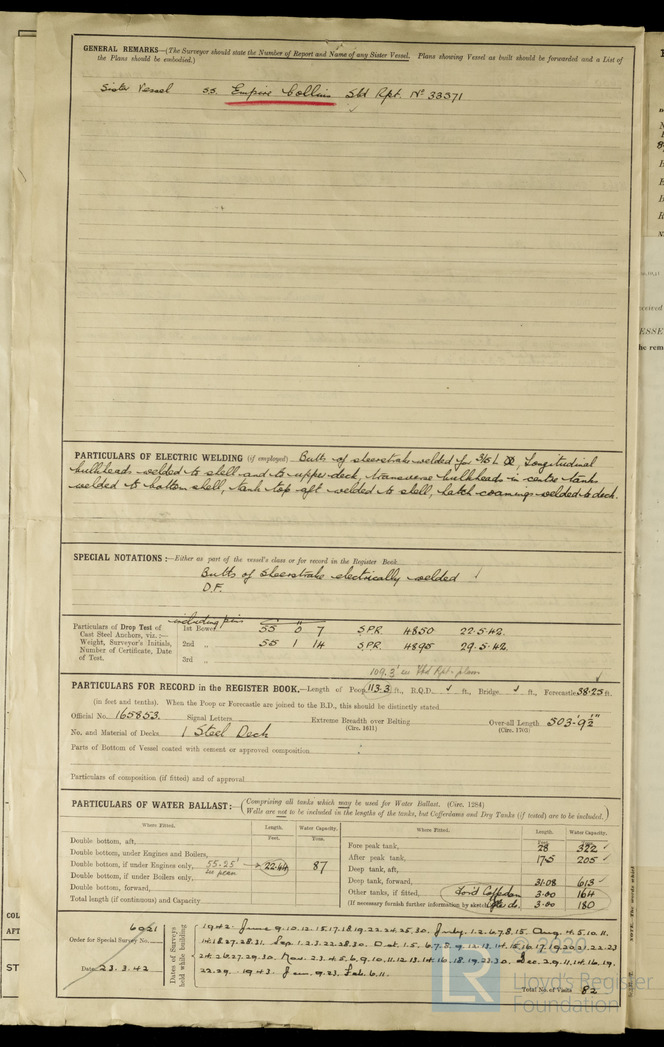 GENERAL REMARKS—(The Surveyor should state the Number of Report and Name of any Sister Vessel. Plans showing Vessel as built should be forwarded and a List of
the Plans should be embodied.)
Sister Vessel S.S. Empire Collins Sld Rpt. No 33371
PARTICULARS OF ELECTRIC WELDING (if employed) Butts of sheerstrake welded for 3/5 L, Longitudinal
bulkheads welded to shell and to upper deck, transverse bulkheads in centre tank
welded to bottom shell, tank top aft welded to shell, hatch coamings welded to deck.
SPECIAL NOTATIONS:—Either as part of the vessel's class or for record in the Register Book
Butts of Sheerstrake electrically welded
D.F.
including pins
Particulars of Drop Test of
Cast Steel Anchors, viz.:—
Weight, Surveyor's Initials,
Number of Certificate, Date
of Test.
1st Bower 55 0 7 S.P.R. 4850 22.5.42.
2nd „ 55 1 14 S.P.R. 4895 29.5.42.
3rd „
109.3' in Rpt. plan
PARTICULARS FOR RECORD in the REGISTER BOOK.—Length of Poop 113.3 ft., R.Q.D. ft., Bridge ft., Forecastle 38.25 ft.
(in feet and tenths). When the Poop or Forecastle are joined to the B.D., this should be distinctly stated
Official No. 165853. Signal Letters Extreme Breadth over Belting (Circ. 1611) Over-all Length (Circ. 1703) 503'-9½"
No. and Material of Decks 1 Steel Deck
Parts of Bottom of Vessel coated with cement or approved composition
Particulars of composition (if fitted) and of approval
PARTICULARS OF WATER BALLAST:—(Comprising all tanks which may be used for Water Ballast. (Circ. 1284)
Wells are not to be included in the lengths of the tanks, but Cofferdams and Dry Tanks (if tested) are to be included.)
Where Fitted. Length. Water Capacity.
Feet. Tons.
Double bottom, aft,
Double bottom, under Engines and Boilers,
Double bottom, if under Engines only, 55.25' 22.44 87
Double bottom, if under Boilers only,
Double bottom, forward,
Total length (if continuous) and Capacity
Where Fitted. Length. Water Capacity.
Fore peak tank, 28 332
After peak tank, 17.5 205
Deep tank, aft,
Deep tank, forward, 31.08 613
Other tanks, if fitted, Ford Cofferdam 3.00 164
(If necessary furnish further information by sketch) 3.00 180
6021
Order for Special Survey No.
Date 23.3.42
Dates of Surveys
held while building
1942- June 9.10.12.15.17.18.19.22.24.25.30. July 1.2.6.7.8.15. Aug. 4.5.10.11.
14.18.27.28.31. Sep 1.2.3.22.28.30. Oct. 1.5.6.7.8.9.12.13.14.15.16.17.19.20.21.22.23
24.26.27.29.30. Nov. 2.3.4.5.6.9.10.11.12.13.14.16.18.19.23.30. Dec. 2.9.11.14.16.19.
22.29. 1943. Jan. 9.23. Feb. 6.11.
Total No. of Visits 82
LR
2020
Lloyd's Register
Foundation
COL
AFT
ST